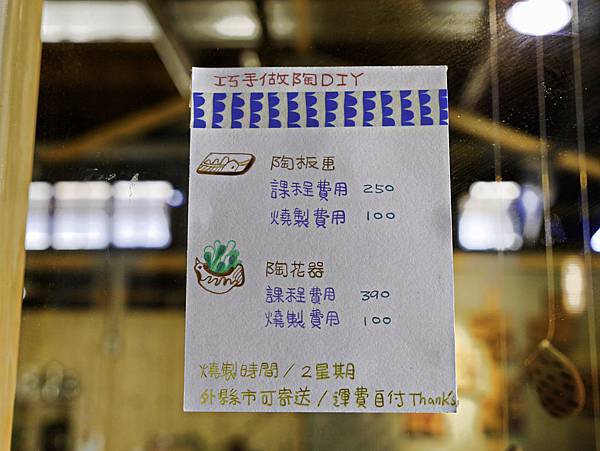 巧手做陶DIY
陶板畫
課程費用 250
燒製費用 100
陶花器
課程費用 390
燒製費用 100
燒製時間/2星期
外縣市可寄送/運費自付Thanks